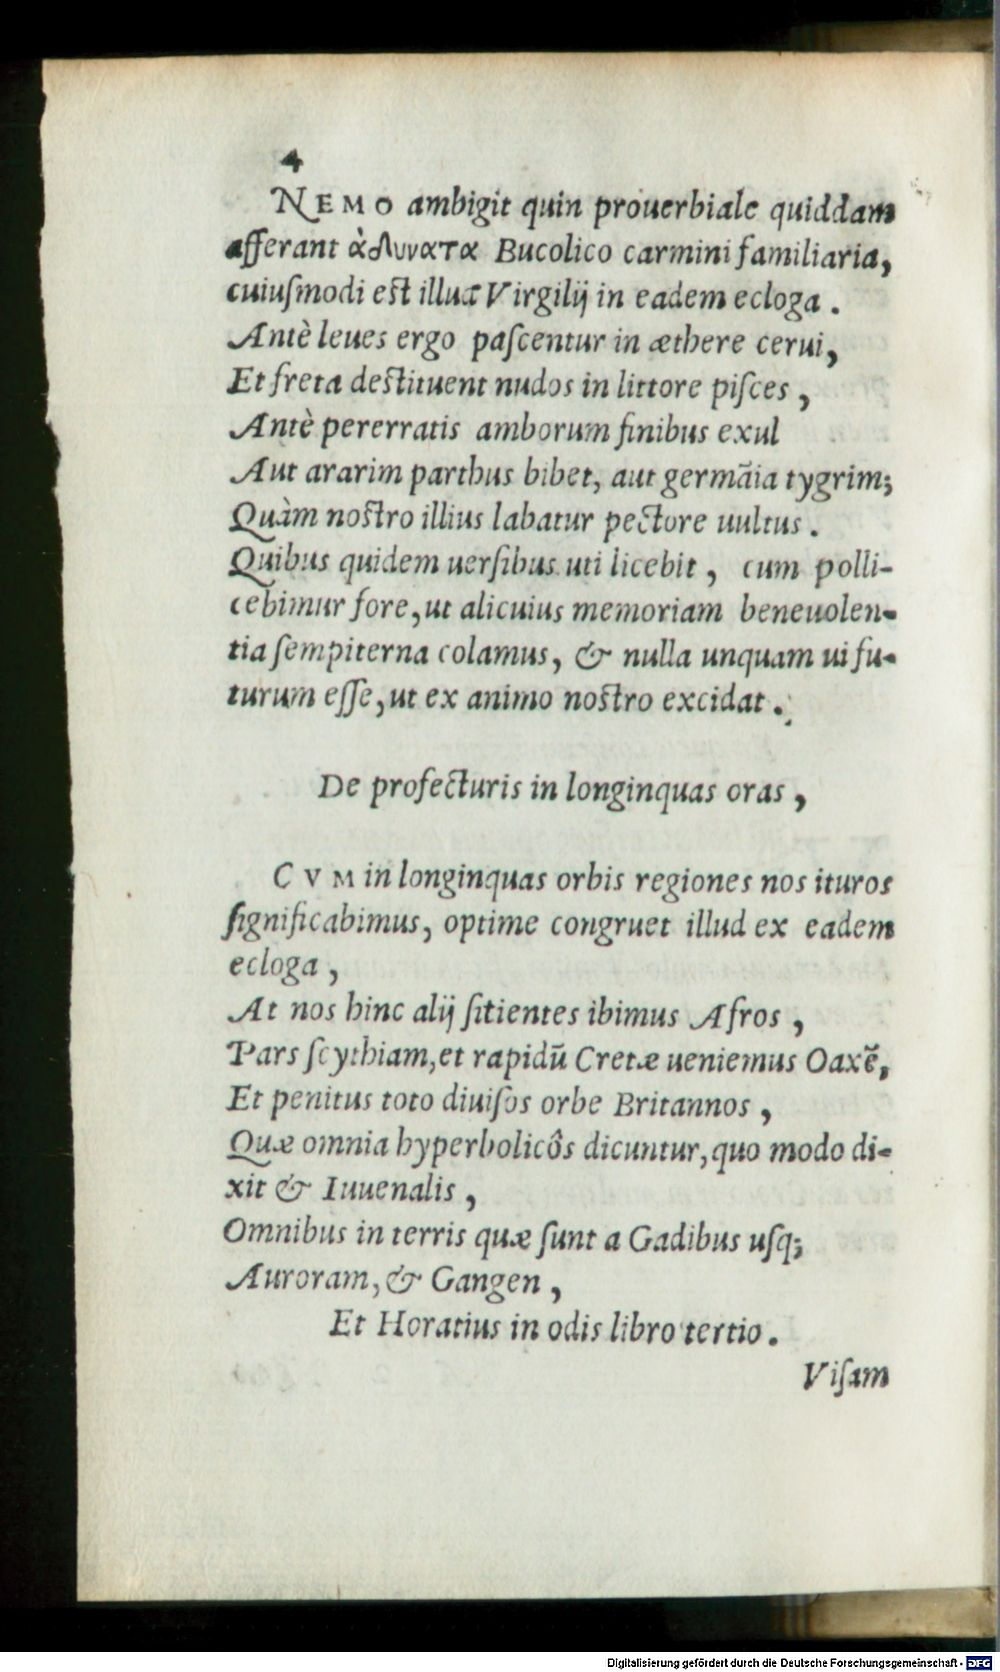 4
NEMO ambigit quin prouerbiale quiddam
afferant ἀδυνατα Bucolico carmini familiaria,
cuiuſmodi est illud Virgilij in eadem ecloga .
Antè leues ergo paſcentur in æthere cerui,
Et freta destituent nudos in littore piſces ,
Antè pererratis amborum finibus exul
Aut ararim parthus bibet, aut germāia tygrim;
Quàm nostro illius labatur pectore uultus .
Quibus quidem uerſibus uti licebit , cum polli-
cebimur fore, ut alicuius memoriam beneuolen-
tia ſempiterna colamus, & nulla unquam ui fu-
turum eſſe, ut ex animo nostro excidat .
De profecturis in longinquas oras ,
CVM in longinquas orbis regiones nos ituros
ſignificabimus, optime congruet illud ex eadem
ecloga ,
At nos hinc alij ſitientes ibimus Afros ,
Pars ſcythiam, et rapidū Cretæ ueniemus Oaxē,
Et penitus toto diuiſos orbe Britannos ,
Quæ omnia hyperbolicôs dicuntur, quo modo di-
xit & Iuuenalis ,
Omnibus in terris quæ ſunt a Gadibus uſq;
Auroram, & Gangen ,
Et Horatius in odis libro tertio .
Viſam
Digitalisierung gefördert durch die Deutsche Forschungsgemeinschaft - DFG